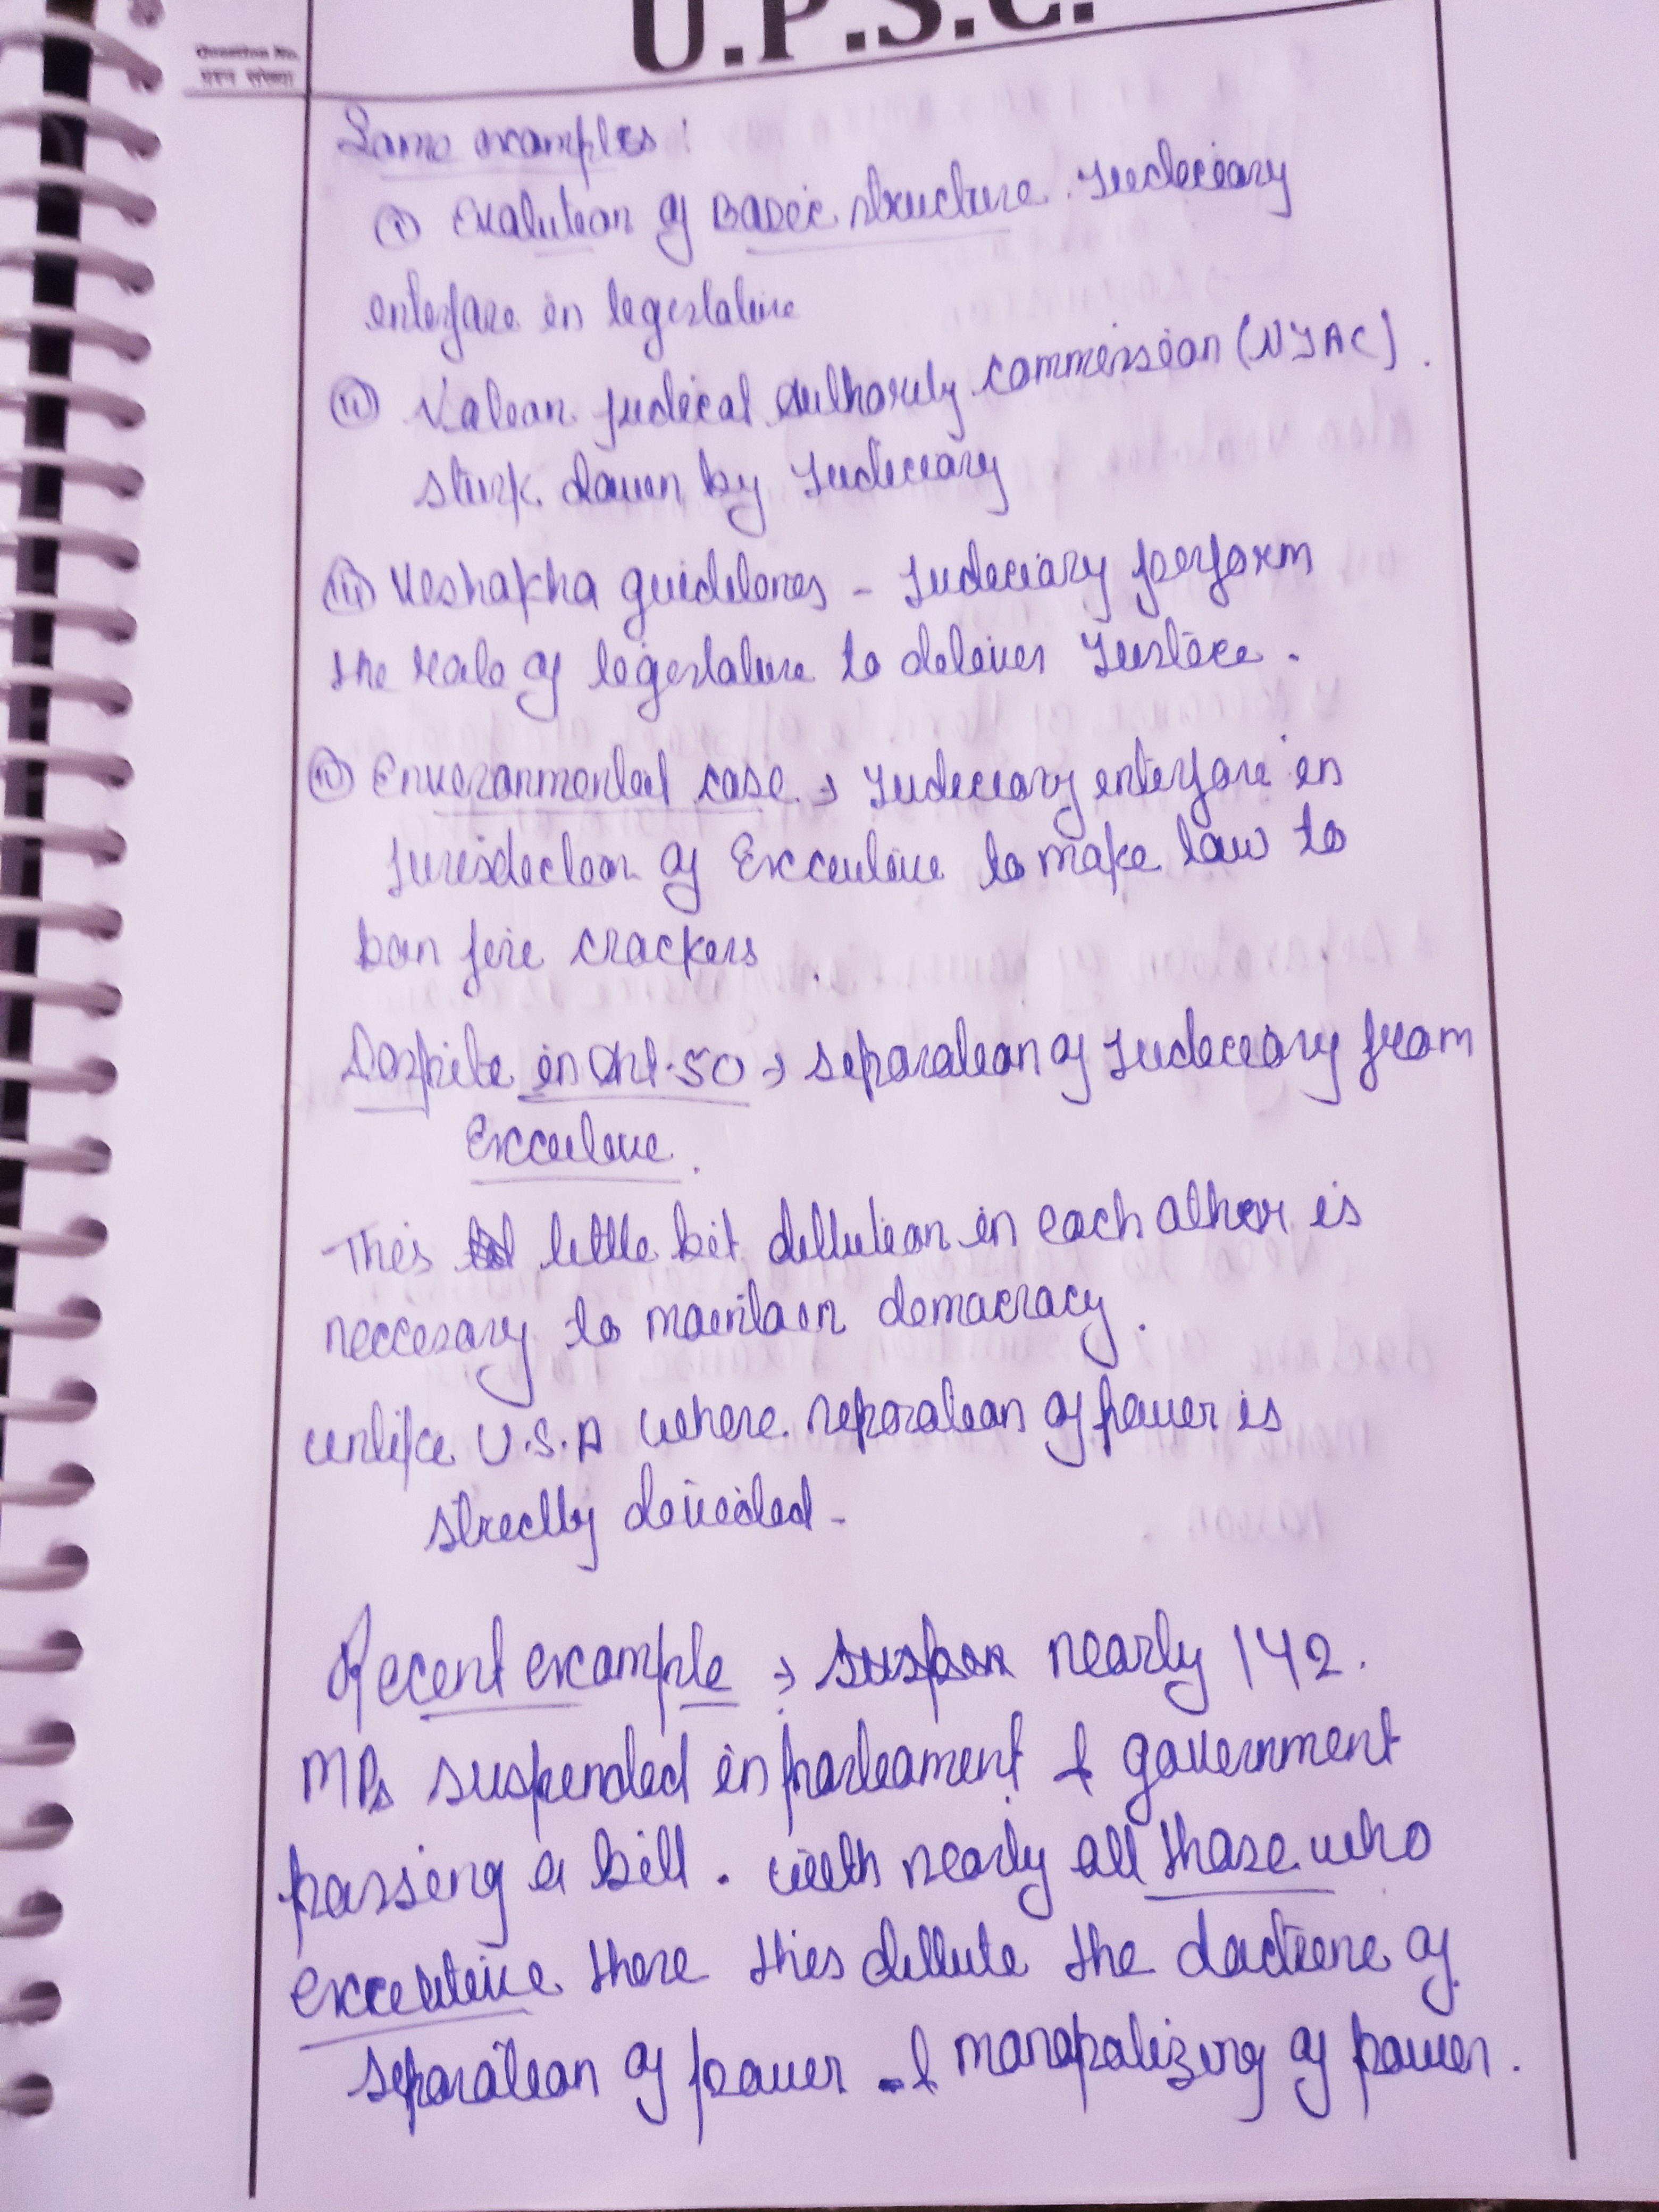 U.P.S.C.
Question No.
प्रश्न संख्या
Some examples :
(i) Evalution of Basic structure. Judiciary
interfare in legislature
(ii) judical Authority commission (NJAC).
down by Judiciary
(iii) Vishakha guidelines - Judiciary perform
the role of legislature to deliver Justice.
(iv) Environmental case → Judiciary interfare in
Jurisdiction of Executive to make law to
ban fire crackers.
Despite in Art. 50 → separation of Judiciary from
Executive.
This little bit dillution in each other is
neccesary to maintain democracy.
unlike U.S.A where separation of power is
strictly divided -
Recent example → nearly 142.
MPs suspended in parliament & government
passing a bill. with nearly all those who
executive there this dillute the doctrine of
separation of power & monopolizing of power.